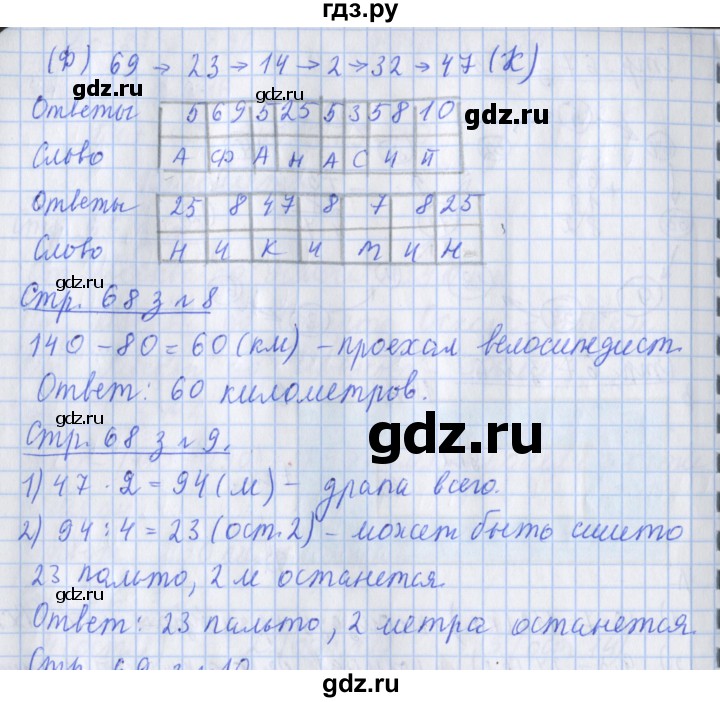 гдз.ру
(Ф) 69 → 23 → 14 → 2 → 32 → 47 (К)
gdz.ru gdz.ru gdz.ru
Ответы 5 69 5 25 5 35 8 10
Слово А Ф А Н А С И Й
Ответы 25 8 47 8 7 8 25
gdz.ru gdz.ru
Слово Н И К И Т И Н
gdz.ru gdz.ru
Стр. 68 з №8
140 - 80 = 60 (км) - проехал велосипедист.
gdz.ru
Ответ: 60 километров.
gdz.ru
Стр. 68 з №9.
1) 47 · 2 = 94 (м) - драпа всего.
gdz.ru gdz.ru
2) 94 : 4 = 23 (ост. 2) - может быть сшито
23 пальто, 2 м останется.
gdz.ru
Ответ: 23 пальто, 2 метра останется.
gdz.ru
Стр. 69 з №10
gdz.ru